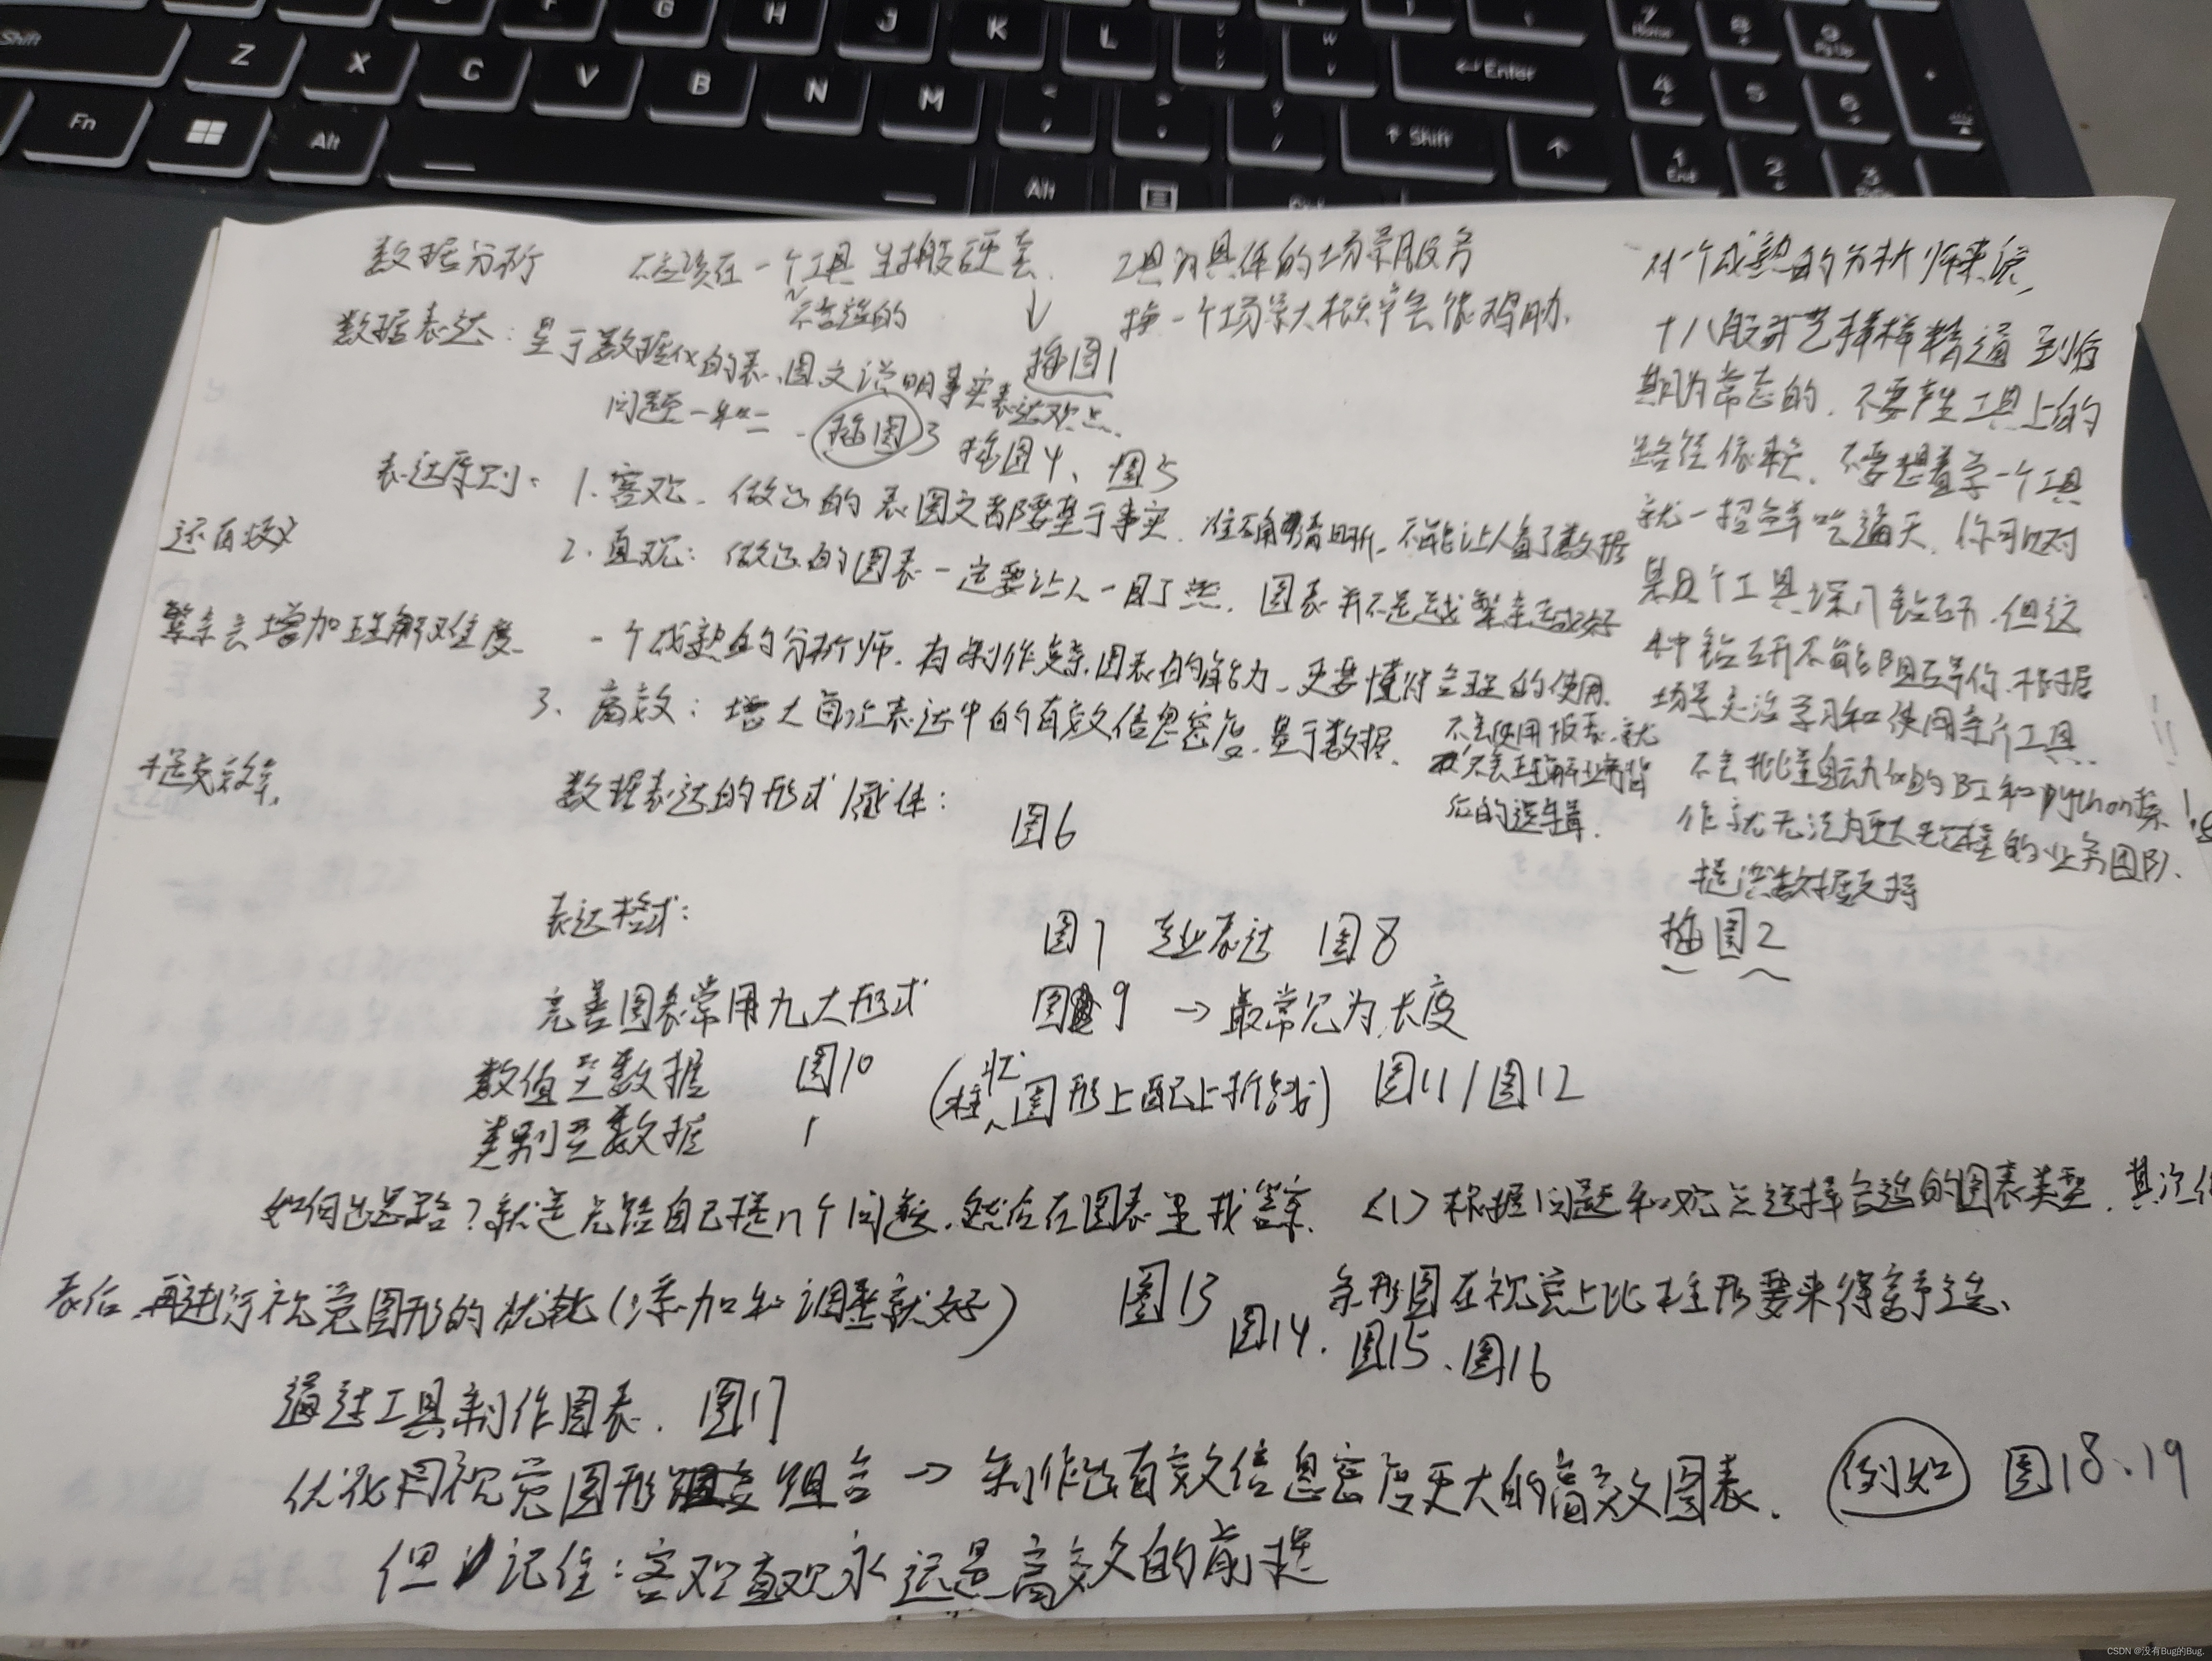 Shift Z X C V B N M
F G H J K L
Enter
Shift
Fn Alt Alt
7 Home
9 PgUp
4 5 6
1 End 2 3
数据分析 不应该在一个工具生搬硬套
不合适的
工具为具体的场景服务
换一个场景大概率会很鸡肋.
插图1
数据表达: 基于数据做的表、图文说明事实表达观点.
问题一和二 插图3 插图4、图5
表达原则: 1.客观. 做出的表图文都要基于事实. 不能让人看了数据
还有歧义
2.直观: 做出的图表一定要让人一目了然. 图表并不是越繁杂越好
繁杂会增加理解难度. 一个成熟的分析师.有制作复杂图表的能力.更要懂得合理的使用.
3、高效: 增大每次表达中的有效信息密度.基于数据.
提交效率.
数据表达的形式/载体: 图6
不会使用报表.就
不会理解业务背
后的逻辑.
对一个成熟的分析师来说,
十八般武艺样样精通到后
期为常态的.不要产生工具上的
路径依赖.不要想着学一个工具
就一招鲜吃遍天.你可以对
某几个工具深入钻研.但这
种钻研不能阻碍你.根据
场景灵活学习和使用各个工具.
不会批量自动化的BI和python操
作就无法为更大规模的业务团队.
提供数据支持
插图2
表达格式: 图7 专业表达 图8
完善图表常用九大形式 图9 →最常见为长度
数值型数据 图10 (柱状图形上配上折线) 图11/图12
类别型数据
如何出思路?就是先给自己提n个问题.然后在图表里找答案. <1>根据问题和观点选择合适的图表类型.其次
表后再进行视觉图形的优化(添加和调整就好) 图13 条形图在视觉上比柱形要来得
图14.图15、图16
通过工具制作图表. 图17
优化用视觉图形组合→制作出有效信息密度更大的高效图表. 例如 图18、19
但记住:客观直观永远是高效的前提
CSDN @没有Bug的Bug.